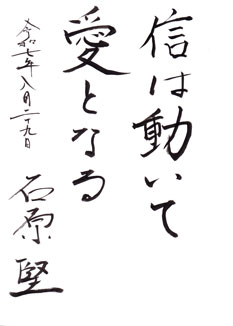 信は動いて
愛となる
令和七年八月二十九日
石原堅